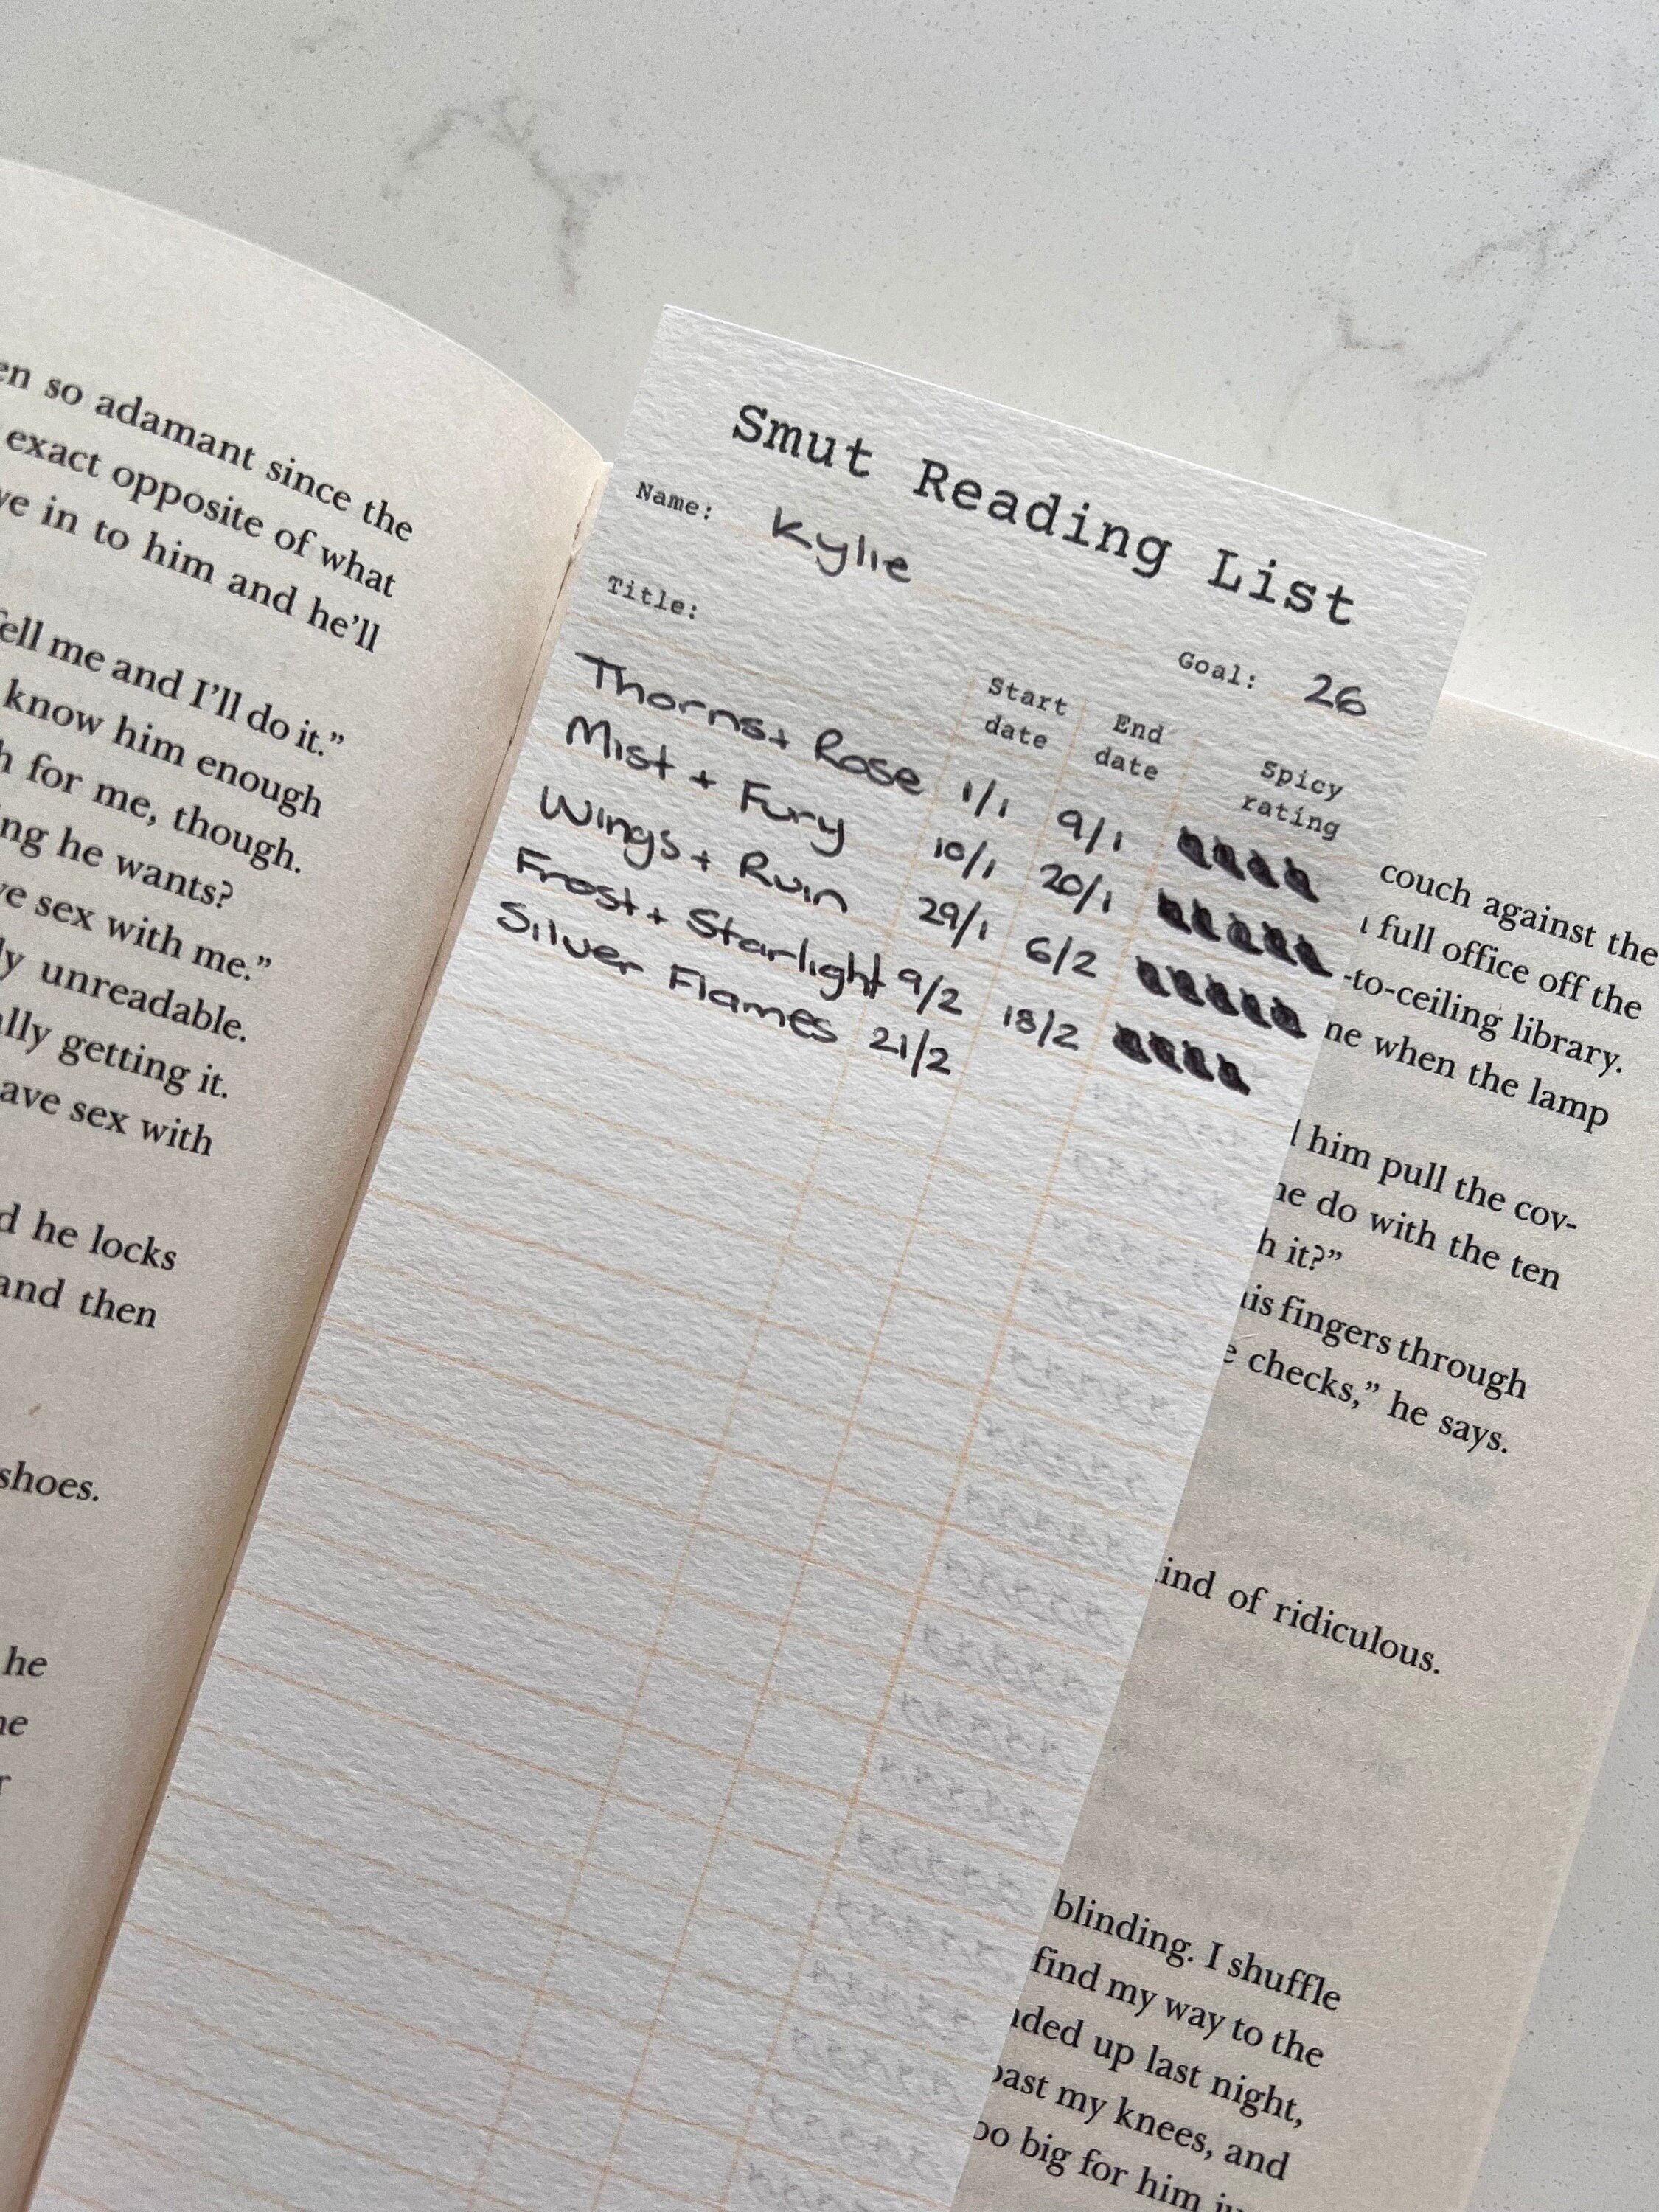 so adamant since the
exact opposite of what
in to him and he'll
me and I'll do it.”
know him enough
for me, though.
he wants?
sex with me.”
unreadable.
getting it.
sex with
he locks
and then
shoes.
he
Smut Reading List
Name: Kylie
Goal: 26
Title: Start date End date Spicy rating
Thorns + Rose 1/1 9/1
Mist + Fury 10/1 20/1
Wings + Ruin 29/1 6/2
Frost + Starlight 9/2 18/2
Silver Flames 21/2
couch against the
full office off the
-to-ceiling library.
when the lamp
him pull the cov-
do with the ten
it?”
fingers through
checks,” he says.
of ridiculous.
blinding. I shuffle
find my way to the
up last night,
my knees, and
big for him